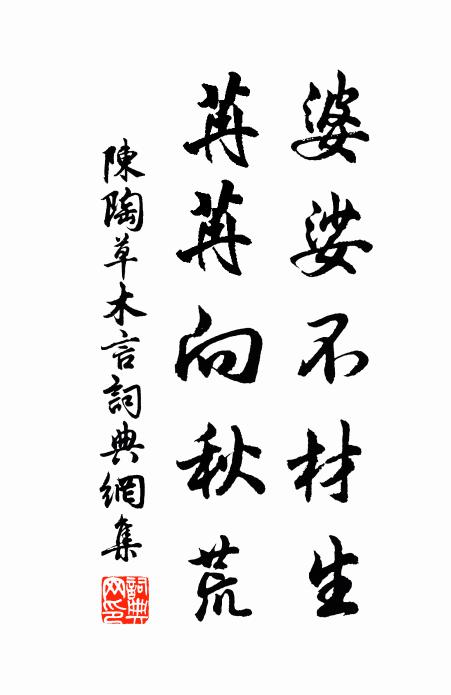 婆娑不材生
苒苒向秋荒
陳陶草木言詞典網集
詞典網印